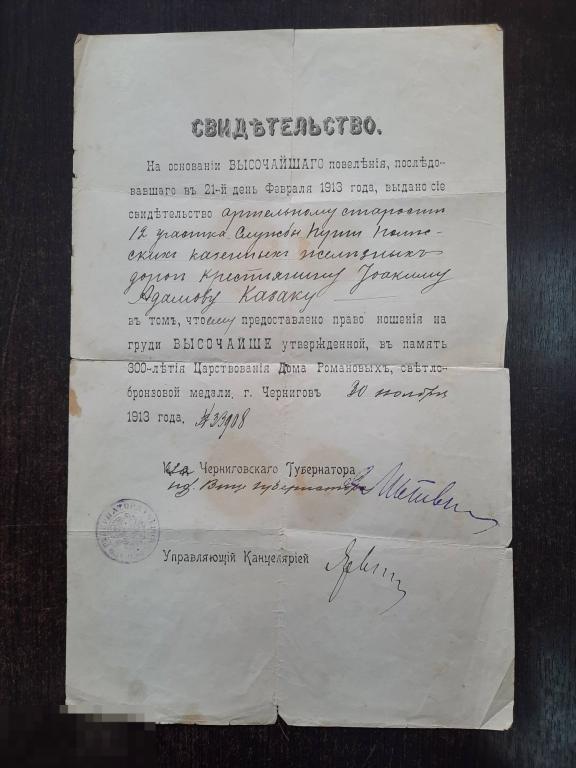 СВИДѢТЕЛЬСТВО.
На основаніи ВЫСОЧАЙШАГО повелѣнія, послѣдо-
вавшаго въ 21-й день Февраля 1913 года, выдано сіе
свидѣтельство артельному старостѣ
12 участка Службы Пути Полѣс-
скихъ казенныхъ желѣзныхъ
дорог крестьянину Іоакиму
Адамову Казаку
въ томъ, что ему предоставлено право ношенія на
груди ВЫСОЧАЙШЕ утвержденной, въ память
300-лѣтія Царствованія Дома Романовыхъ, свѣтло-
бронзовой медали, г. Черниговъ 30 ноября
1913 года. № 33908
За Черниговскаго Губернатора
Вице губернатора
Управляющій Канцеляріей